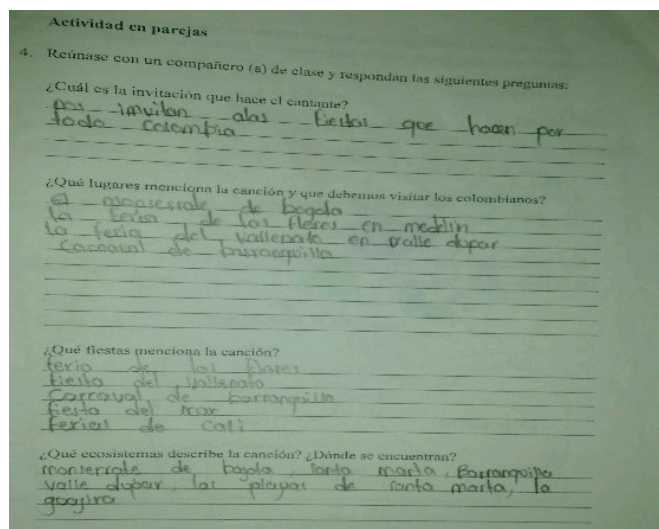 Actividad en parejas
4. Reúnase con un compañero (a) de clase y respondan las siguientes preguntas:
¿Cuál es la invitación que hace el cantante?
nos invitan alas fiestas que hacen por
toda colombia
¿Qué lugares menciona la canción y que debemos visitar los colombianos?
el monserrate de bogota
la feria de las flores en medellin
la feria del vallenato en valle dupar
carnaval de barranquilla
¿Qué fiestas menciona la canción?
feria de las flores
fiesta del vallenato
Carnaval de barranquilla
fiesta del mar
ferias de cali
¿Qué ecosistemas describe la canción? ¿Dónde se encuentran?
monserrate de bogota, santa marta, Barranquilla
valle dupar, las playas de santa marta, la
guajira